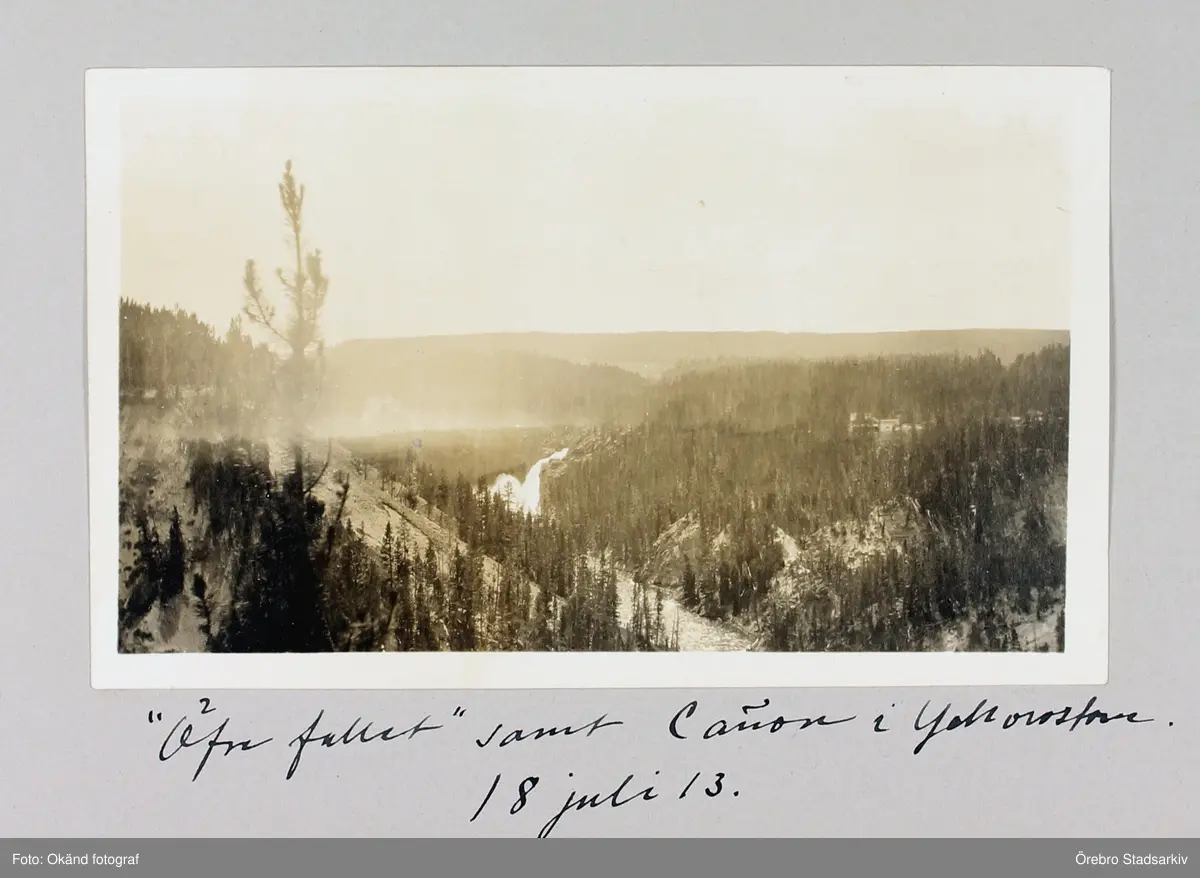 "Öfre fallet" samt Cañon i Yellowstone.
18 juli 13.
Foto: Okänd fotograf
Örebro Stadsarkiv